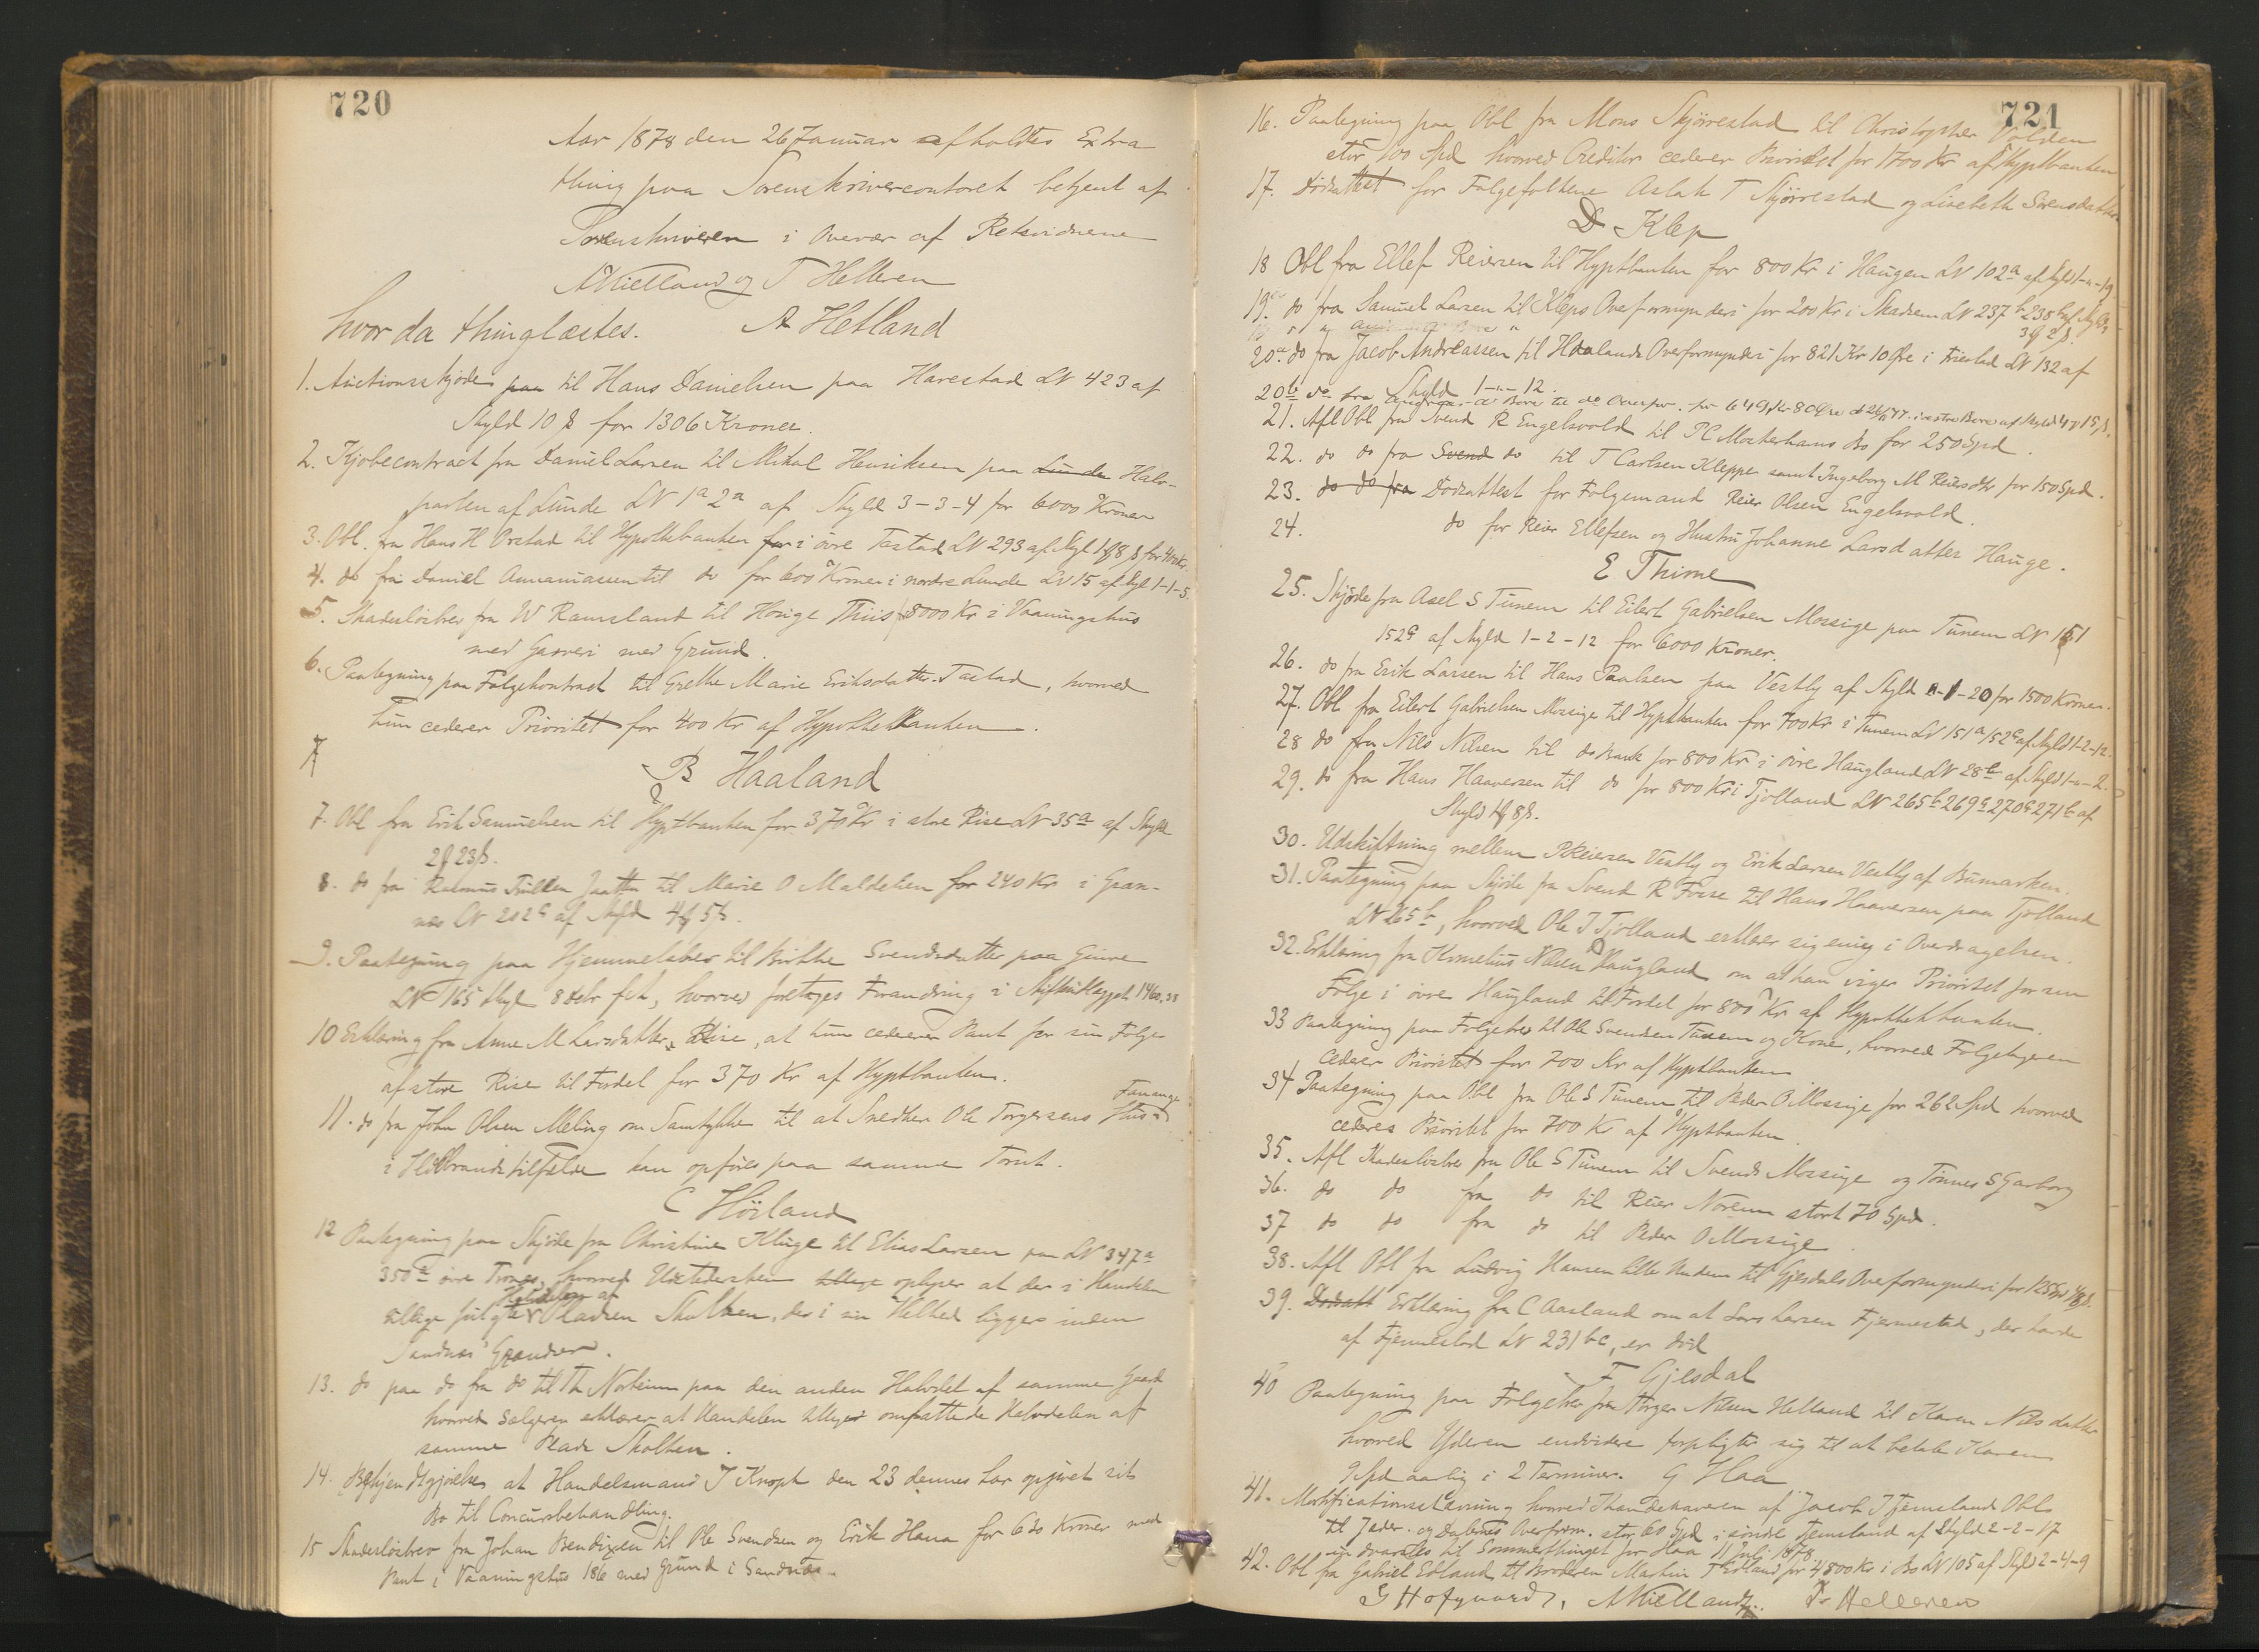 720
Aar 1878 den 26 Januar afholdtes Extra
thing paa Sorenskrivercontoret betjent af
Sorenskriveren i Overvær af Retsvidnerne
A Kielland og T Helleren
hvor da thinglæstes. A Hetland
1. Auctionsskjøde paa til Hans Danielsen paa Harestad LN 423 af
Skyld 10 ß for 1306 Kroner.
2. Kjøbecontract fra Daniel Larsen til Mikal Henriksen paa Lunde Halv-
parten af Lunde LN 1a 2a af Skyld 3-3-4 for 6000 Kroner
3. Obl. fra Hans H Orstad til Hypothekbanken for i øvre Tastad LN 293 af Skyl
4. do fra Daniel Annamiassen til do for 600 Kroner i nordre Lunde LN 15 af Skyl 1-1-5.
5. Skadesløsbrev fra W Ramsland til Honige Thiis f 8000 Kr i Vaaningshus
med Garveri med Grund.
6. Paategning paa Folgekontract til Grethe Marie Eriksdatter Tastad, hvorved
hun cederer Prioritet for 400 Kr af Hypothekbanken.
7
B Haaland
7. Obl fra Erik Samuelsen til Hyptbanken for 370 Kr i store Rise LN 35a af Skyld
2 23ß.
8. do fra Rasmus Jaatten til Marie O Maldelien for 240 Kr i Gran-
næs LN 202 af Skyld 4 5ß.
9. Paategning paa Hjemmelsbrev til Birthe Svendsdatter paa
LN 165 Skyl 8 hvorved foretages Forandring i 1460,38
10 Erklæring fra Anne M Larsdatter Riise, at hun cederer Pant for sin Folge
af store Rise til Fordel for 370 Kr af Hyptbanken.
11. do fra John Olsen Meling om Samtykke til at Snedker Ole Torgersens Hus
i Ildbrandstilfælde kan opføres paa samme Tomt.
C Höiland
12 Paategning paa Skjøde fra Christine Kluge til Elias Larsen paa LN 347a
350a øvre Trones, hvorved Udstedersken tillige oplyser at der i Handelen
tillige fulgte Halvdelen af Pladsen Skolten, der i sin Helhed ligger inden
Sandnæs Grændser.
13. do paa do fra do til Th Norheim paa den anden Halvdel af samme Gaard
hvorved Sælgeren erklærer at Handelen tillige omfattede Halvdelen af
samme Plads Skolten.
14. Bekjendtgjørelse at Handelsmand J Knoph den 23 dennes har opgivet sit
Bo til Concursbehandling.
15 Skadesløsbrev fra Johan Bendixen til Ole Svendsen og Erik Hana for 630 Kroner med
Pant i Vaaningshus 186 med Grund i Sandnæs.
721
16. Paategning paa Obl fra Mons Skjørrestad til Christopher Volden
stor 100 Spd hvorved Creditor cederer Prioritet for 1700 Kr af Hyptbanken
17. Dødsattest for Folgefolkene Aslak T Skjørrestad og Lisebeth Svensdatter
D Klep
18 Obl fra Ellef Reiersen til Hyptbanken for 800 Kr i Haugen LN 102a af Skyld 1-"-19
19. do fra Samuel Larsen til Kleps Overformynderi for 200 Kr i Skadsem LN 237b 238b af Skyld
3 2ß.
20a. do fra Jacob Andreassen til Haalands Overformynderi for 821 Kr 10 Øre i Friestad LN 132 af
Skyld 1-"-12.
20b do fra Bore til do Overfor. for 649 Kr 80 Øre i vestre Bore af Skyld 15ß.
21. Afl Obl fra Svend R Engelsvold til PC Mockerhans Bo for 250 Spd.
22. do do fra Svend do til T Carlsen Kleppe samt Ingeborg M Reiersdtr for 150 Spd.
23. do do fra Dødsattest for Folgemand Reier Olsen Engelsvold.
24. do for Reier Ellefsen og Hustru Johanne Larsdatter Hauge.
E Thime
25. Skjøde fra Asel S Tunem til Eilert Gabrielsen Mossige paa Tunem LN 151
152a af Skyld 1-2-12 for 6000 Kroner.
26. do fra Erik Larsen til Hans Paalsen paa Vestly af Skyld "-1-20 for 1500 Kroner.
27. Obl fra Eilert Gabrielsen Mossige til Hyptbanken for 700 Kr i Tunem LN 151a 152a af Skyld 1-2-12.
28 do fra Nils Nilsen til do Bank for 800 Kr i øvre Haugland LN 28b af Skyld 1-"-2.
29. do fra Hans Haaversen til do for 800 Kr i Tjolland LN 265b 269a 270a 271b af
Skyld 8ß.
30. Udskiftning mellem P Reiersen Vestly og Erik Larsen Vestly af Bumarken.
31. Paategning paa Skjøde fra Svend R Fosse til Hans Haaversen paa Tjolland
LN 265b, hvorved Ole J Tjolland erklærer sig enig i Overdragelsen.
32. Erklæring fra Kornelius Nilsen Haugland om at han viger Prioritet for sin
Folge i øvre Haugland til Fordel for 800 Kr af Hypothekbanken.
33 Paategning paa Folgebrev til Ole Svendsen Tunem og Kone, hvorved Folgetageren
cederer Prioritet for 700 Kr af Hyptbanken
34 Paategning paa Obl fra Ole S Tunem til Peder O Mossige for 262 Spd hvorved
cederes Prioritet for 700 Kr af Hyptbanken.
35. Afl Skadesløsbrev fra Ole S Tunem til Svend Mossige og Tønnes S Garborg
36. do do fra do til Reier Norem stort 70 Spd.
37 do do fra do til Peder O Mossige.
38. Afl Obl fra Ludvig Hansen til Gjesdals Overformynderi for
39. Dødsatt Erklæring fra C Aasland om at Lars Larsen Fjermestad, der havde
af Fjermestad LN 231 bc, er død
F Gjesdal
40 Paategning paa Folgebrev fra Asger Nilsen Helland til Karen Nilsdatter
hvorved Yderen endvidere forpligter sig til at betale Karen
9 Spd aarlig i 2 Terminer. G Haa
41. Mortificationsstævning hvorved Ihændehaveren af Jacob J Fjemsland Obl
til Jæder. og Dalernes Overform. stor 60 Spd i søndre Fjemsland af Skyld 2-2-17
indvarsles til Sommerthinget for Haa 11 Juli 1878.
42. Obl fra Gabriel Edland til Broderen Martin T Edland for 4800 Kr i Bo LN 105 af Skyld 2-4-9
G Hofgaard, A Kielland, T Helleren